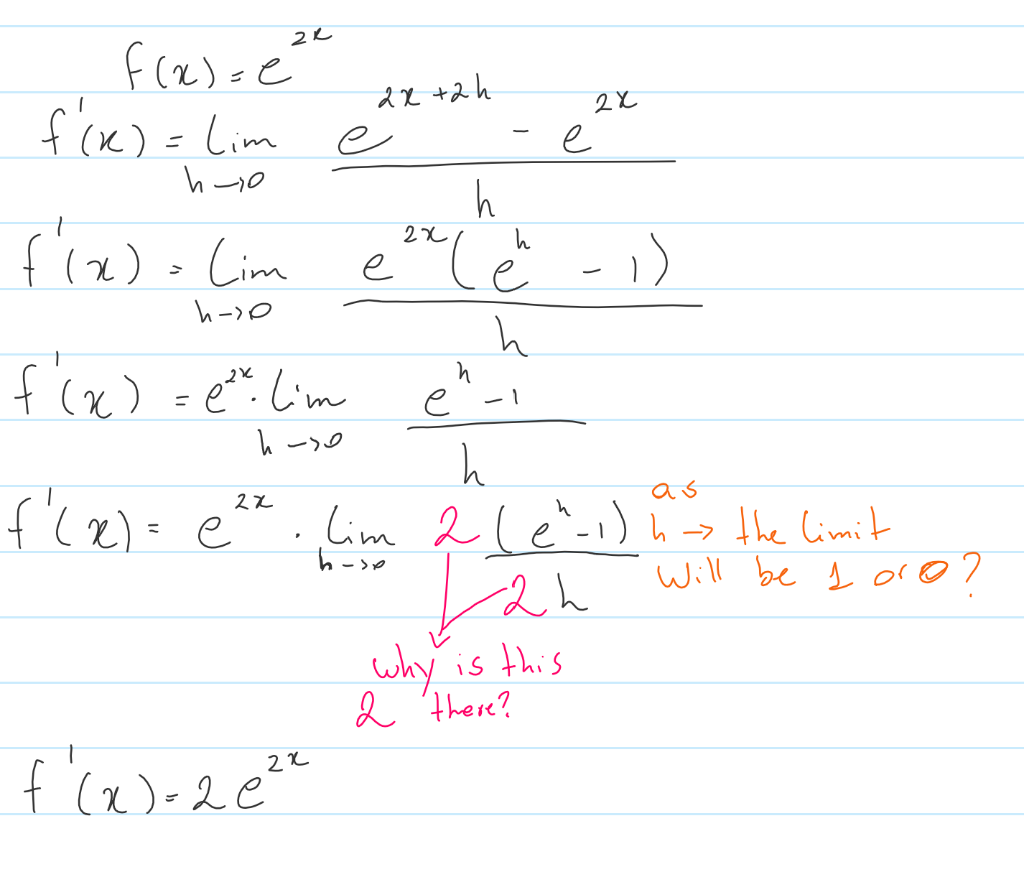 f(x) = e^{2x}
f'(x) = lim_{h→0} \frac{e^{2x+2h} - e^{2x}}{h}
f'(x) = lim_{h→0} \frac{e^{2x}(e^{h} - 1)}{h}
f'(x) = e^{2x} · lim_{h→0} \frac{e^{h} - 1}{h}
f'(x) = e^{2x} · lim_{h→0} 2 \frac{(e^{h} - 1)}{2h}
as
h → the limit
will be 1 or 0?
why is this
2 there?
f'(x) = 2e^{2x}